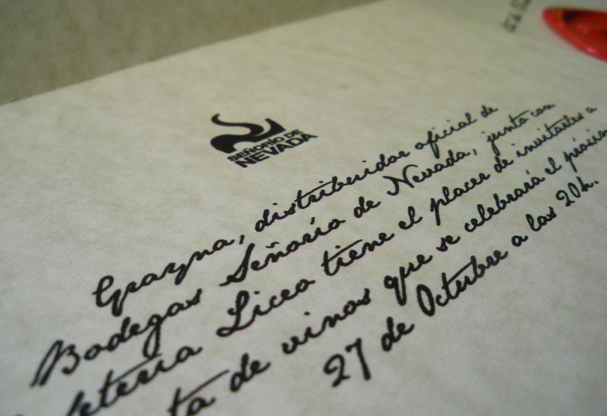 SEÑORÍO DE
NEVADA
Grayna, distribuidor oficial de
Bodegas Señorío de Nevada, junto con
Liceo tiene el placer de invitarles a
de vinos que se celebrará el
27 de Octubre a las 20h.